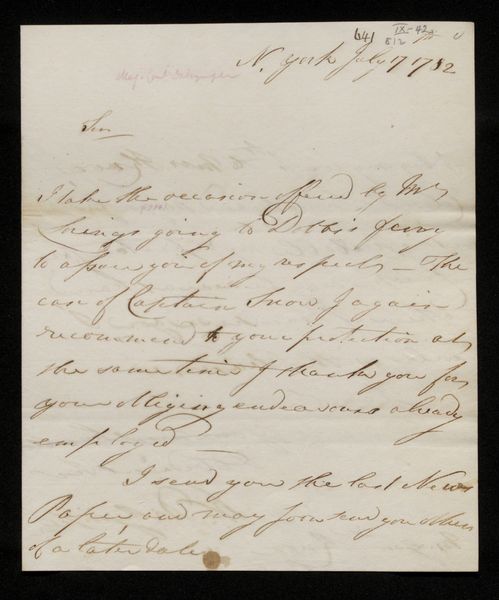 641 IX-42
512
N. York July 17 1782
Sir
I take the occasion offered by Mrs
going to Dobbs's ferry
to assure you of my respects — The
case of Captain Snow I again
recommend to your protection at
the same time I thank you for
your obliging endeavours already
employed —
I send you the last News
Paper and may soon send you others
of a later date